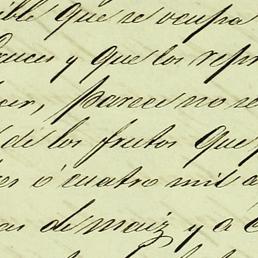 ible que se ocupa
y que los repr
parece no re
de los frutos que
es ó cuatro mil a
as de maiz y a